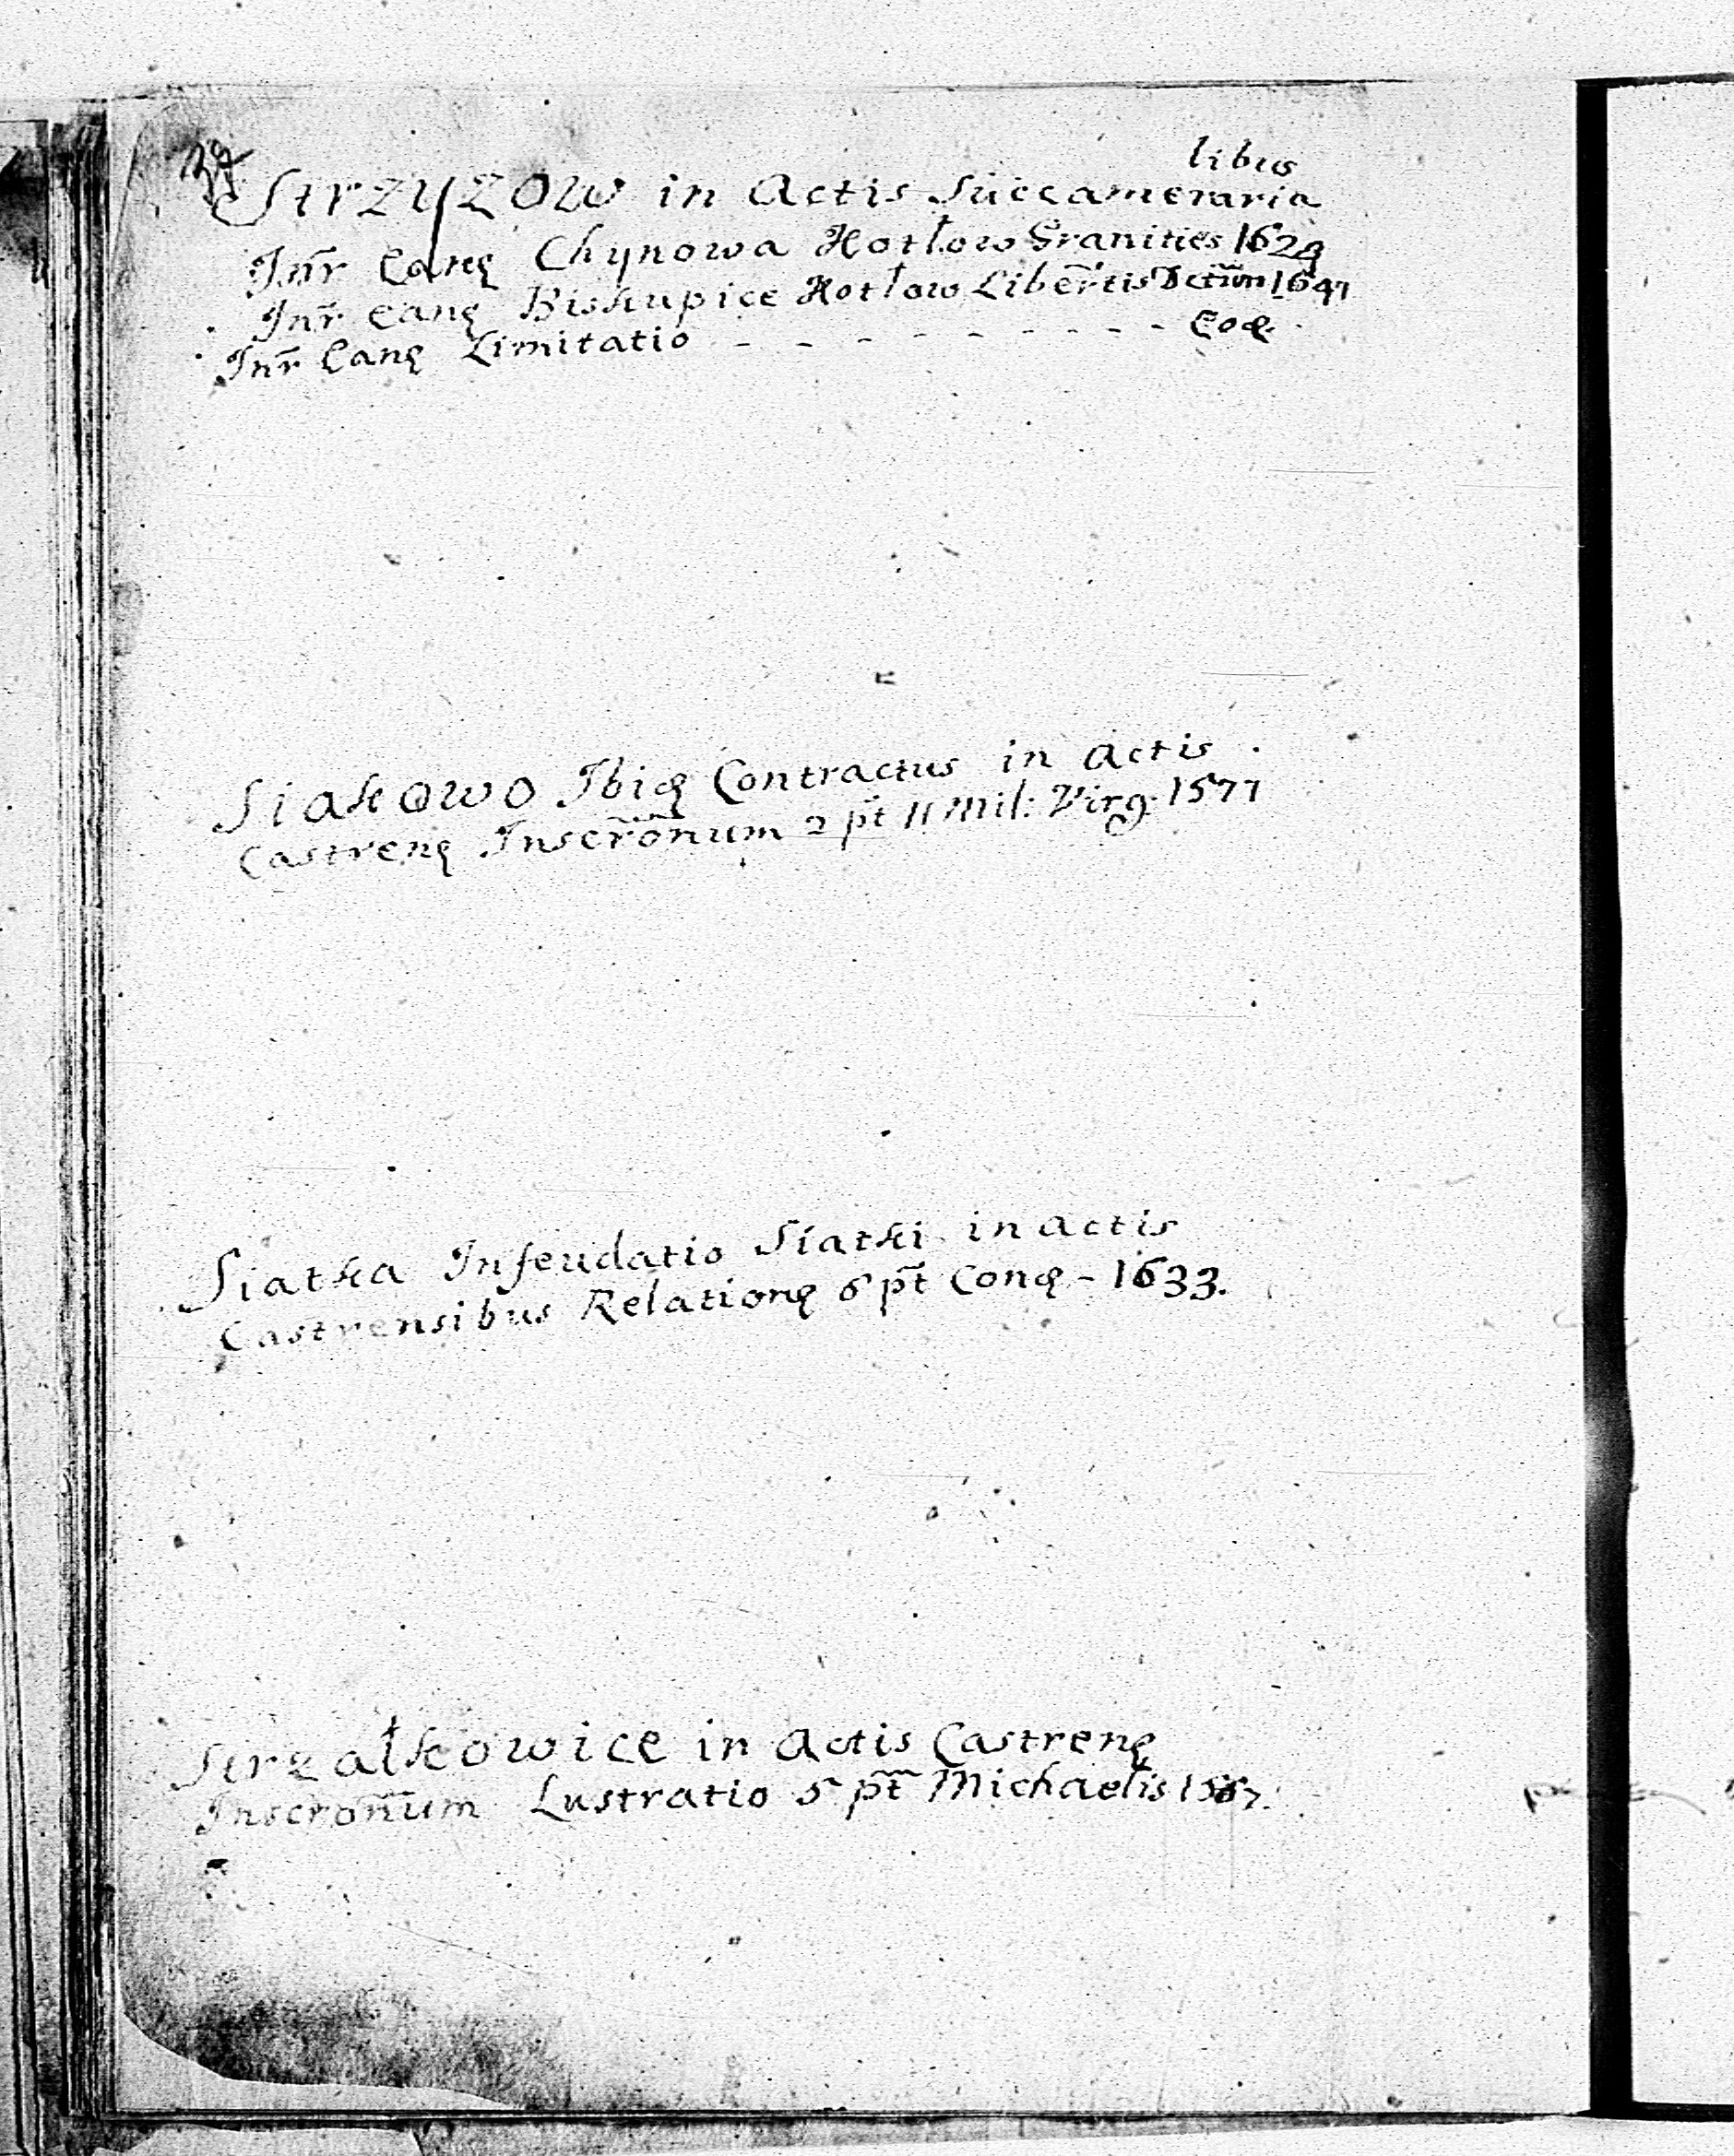 libus
Strzyzow in Actis Succameraria
Inr̃ Eanꝗ Chynowa Hotłow Granities 1624
Inr̃ eanꝗ Biskupice Hotłow Liber̃tis Dctũm 1647
Inr̃ Eanꝗ Limitatio - - - - - - - - - Eoꝗ.
Siakowo Ibiꝗ Contractus in Actis
Castrenꝗ Inscr̃onum 2 pt̃ 11 Mil: Virg. 1577
Siatka Infeudatio Siatki in actis
Castrensibus Relationꝗ 6 pt̃ Conꝗ - 1633.
Strzałkowice in Actis Castrenꝗ
Inscronũm Lustratio 5 pt̃ Michaelis